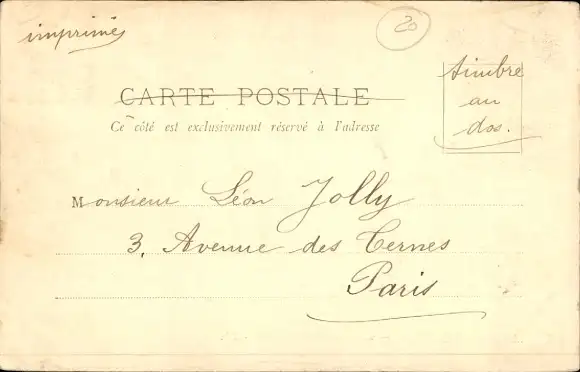 imprimés
20
timbre
au
dos.
CARTE POSTALE
Ce côté est exclusivement réservé à l'adresse
Monsieur Léon Jolly
3, Avenue des Ternes
Paris